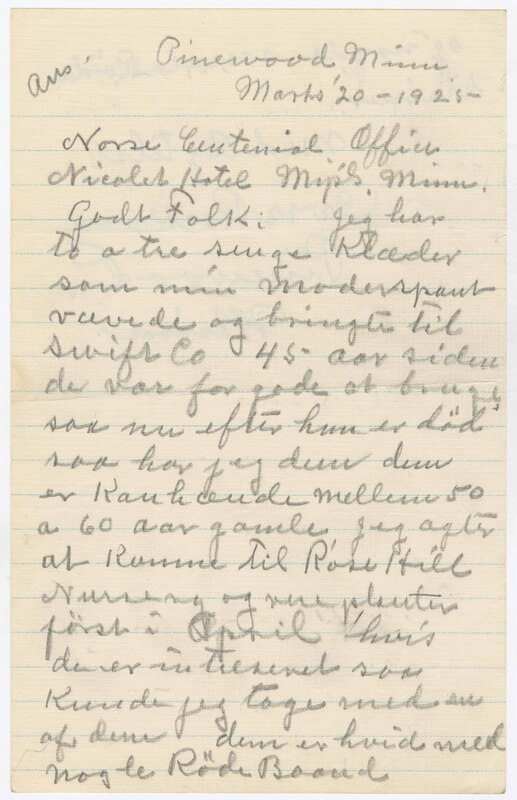 Ans'
Pinewood Minn
Marts 20 - 1925-
Norse Centenial Office
Nicolet Hotel Mip'ls, Minn.
Godt Folk; jeg har
to a tre senge Klæder
som min moder spant
vævede og bringte til
Swift Co 45 aar siden
de var for gode at bruge,
saa nu efter hun er død
saa har jeg dem dem
er Kanhænde mellem 50
a 60 aar gamle jeg agter
at Komme til Rose Hill
Nurserg og planter
først i April hvis
de er intreseret saa
Kunde jeg tage med en
af dem dem er hvid med
nogle Røde Baand